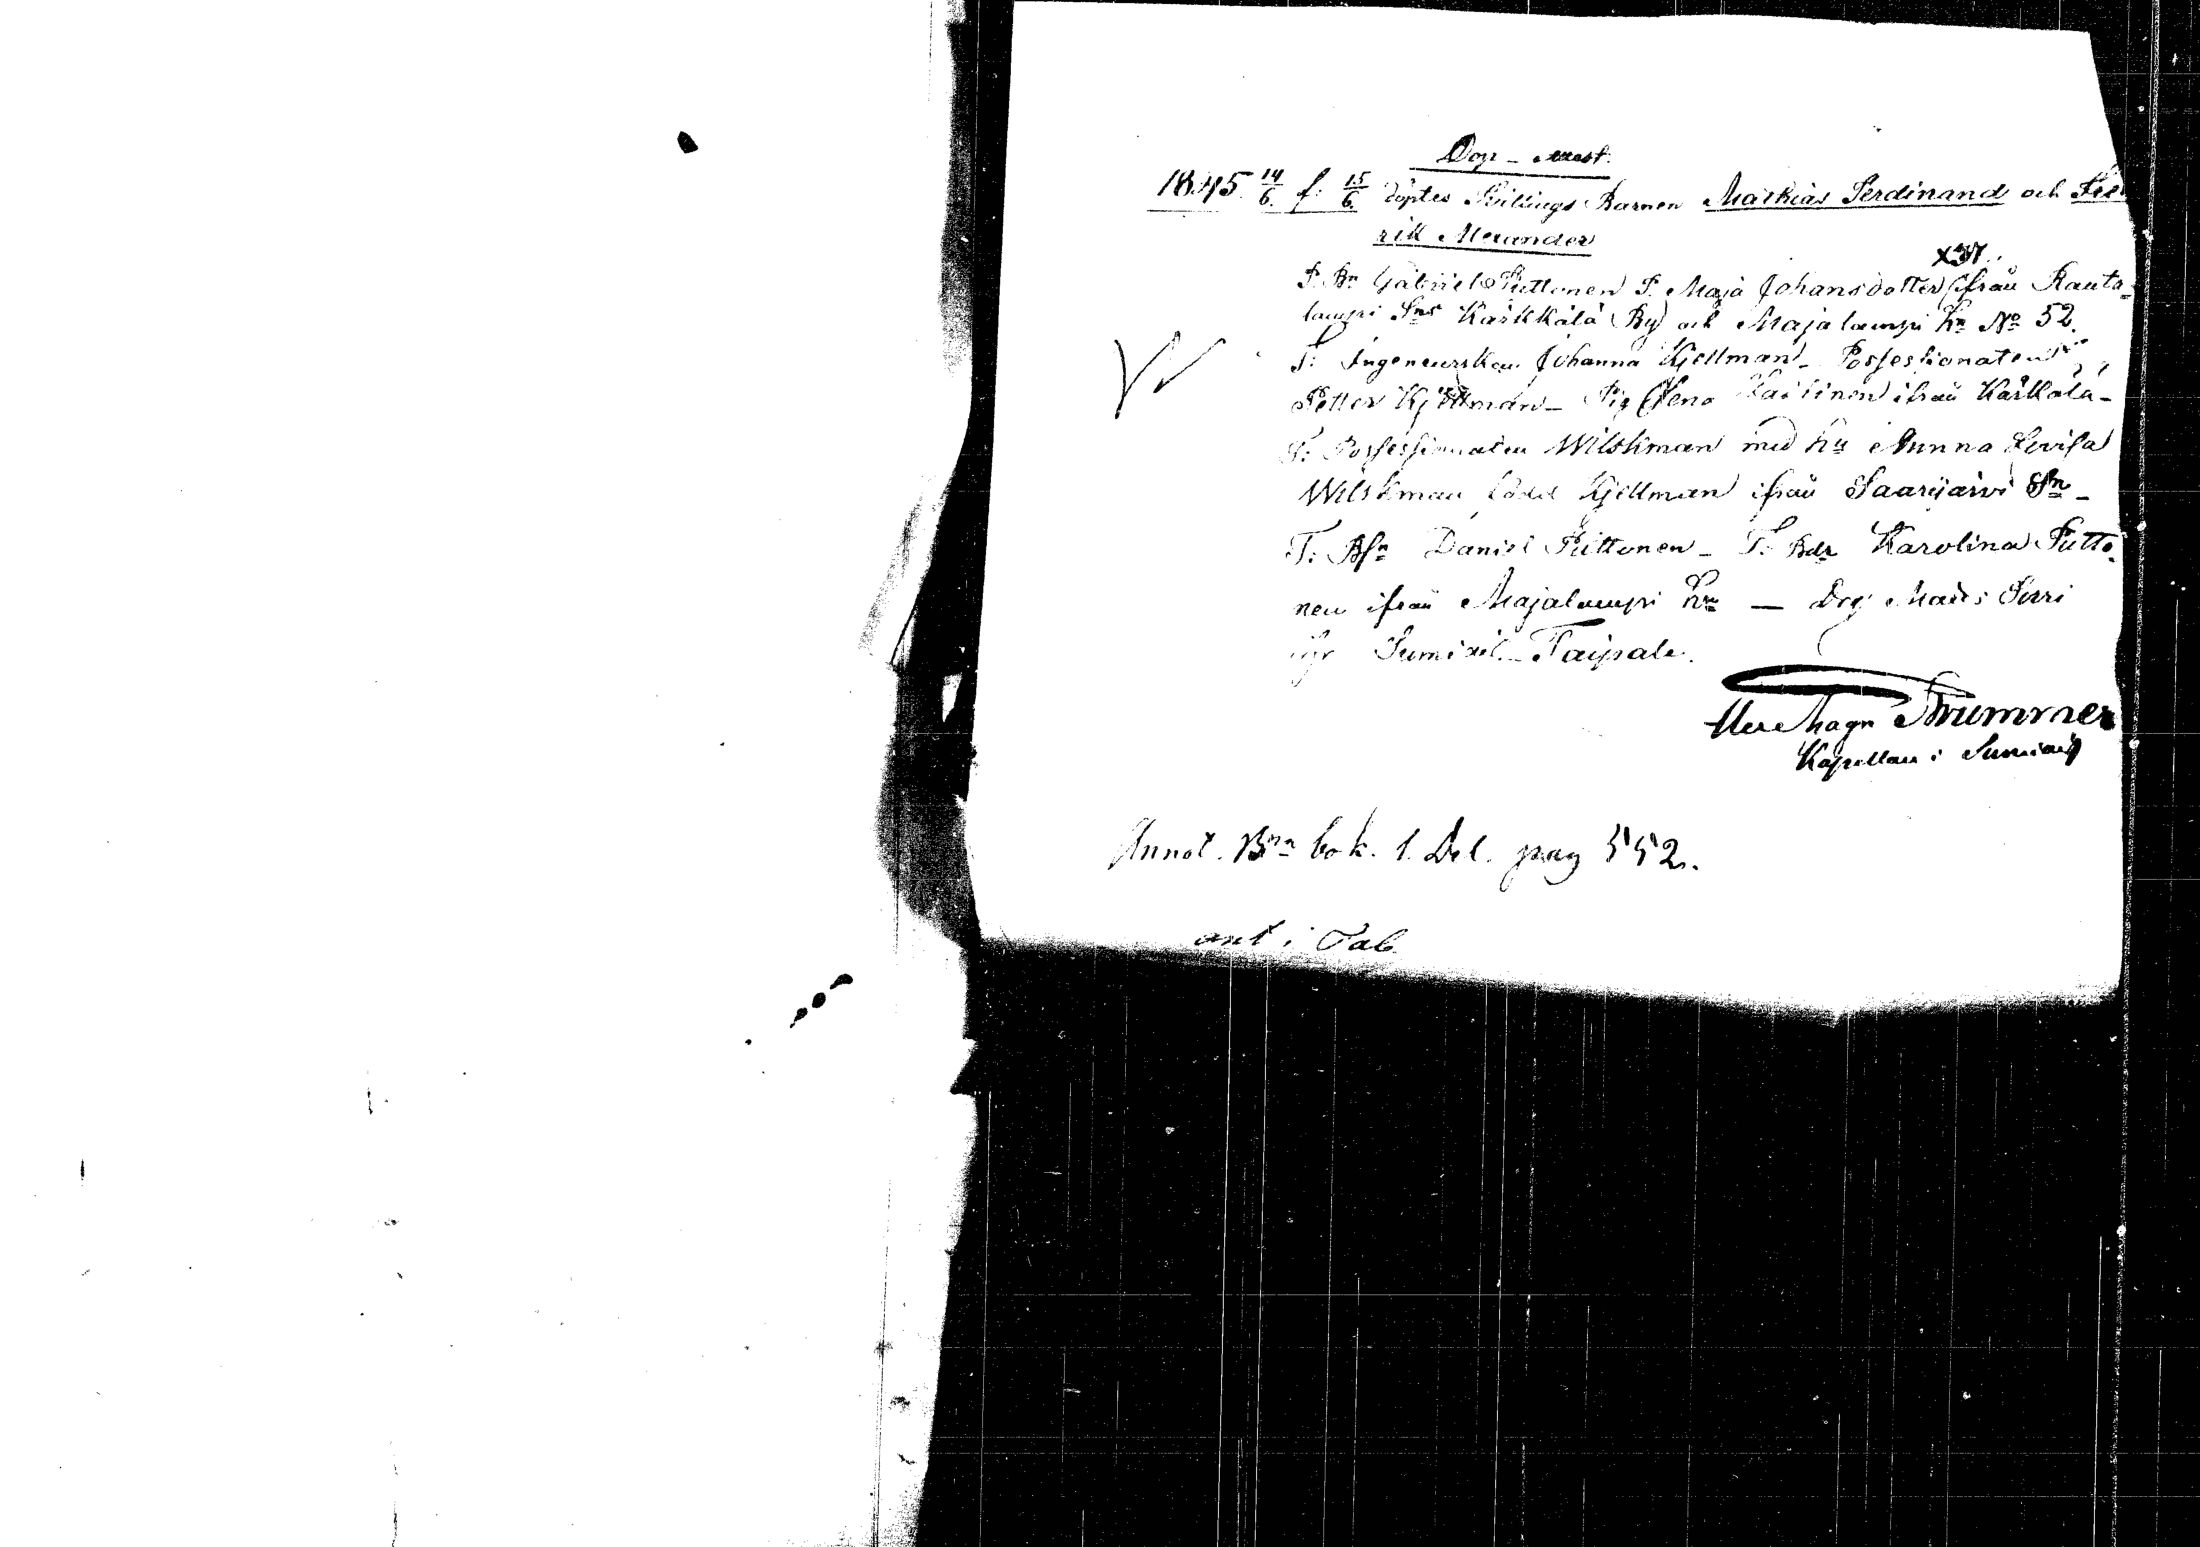 Dop-Attest.
1845 14/6 f: 15/6 döptes Tvillings Barnen Mathias Ferdinand och Fred
rik Alexander
x37.
F. Bn Gabriel Puttonen F. Maja Johansdotter ifrån Rauta-
lampi Sns Kärkkälä By och Majalampi Hn No 52.
T: Ingeneurskan Johanna Kjellman - Possessionaten
Petter Kjellman - Pig Lena ifrån Kärkälä -
T: Possessionaten Wilskman med hu Anna Lovisa
Wilskman född Kjellman ifrån Saarijärvi Sn -
T: Bsn Daniel Puttonen - T: Bdr Karolina Putto-
nen ifrån Majalampi Hn - Drg Mats Sirri
ifr Sumiais Taipale.
Alex Magn Brummer
Kapellan i Sumiais
Annot. Bna bok. 1. Del. pag 552.
ant i Tab.